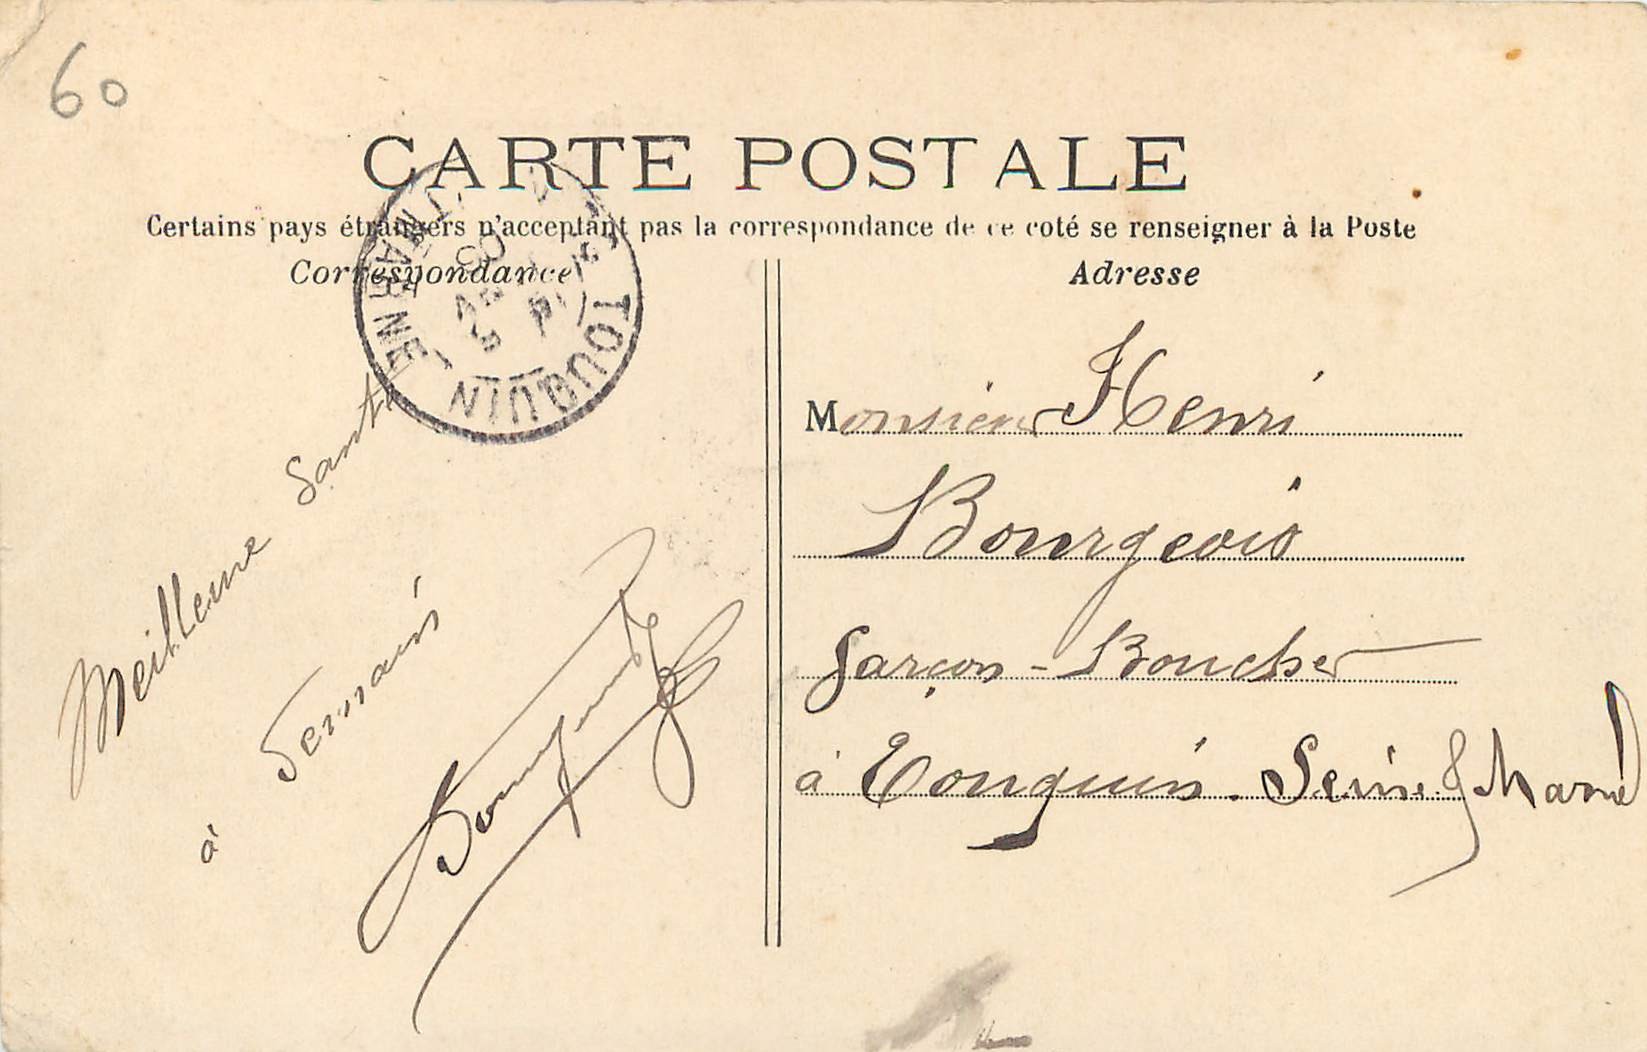 60
CARTE POSTALE
Certains pays étrangers n'acceptant pas la correspondance de ce coté se renseigner à la Poste
Correspondance
Adresse
TOUQUIN
MARNE
Meilleure Santé
à
Monsieur Henri
Bourgeois
Garçon-Boucher
à Touquin. Seine & Marne